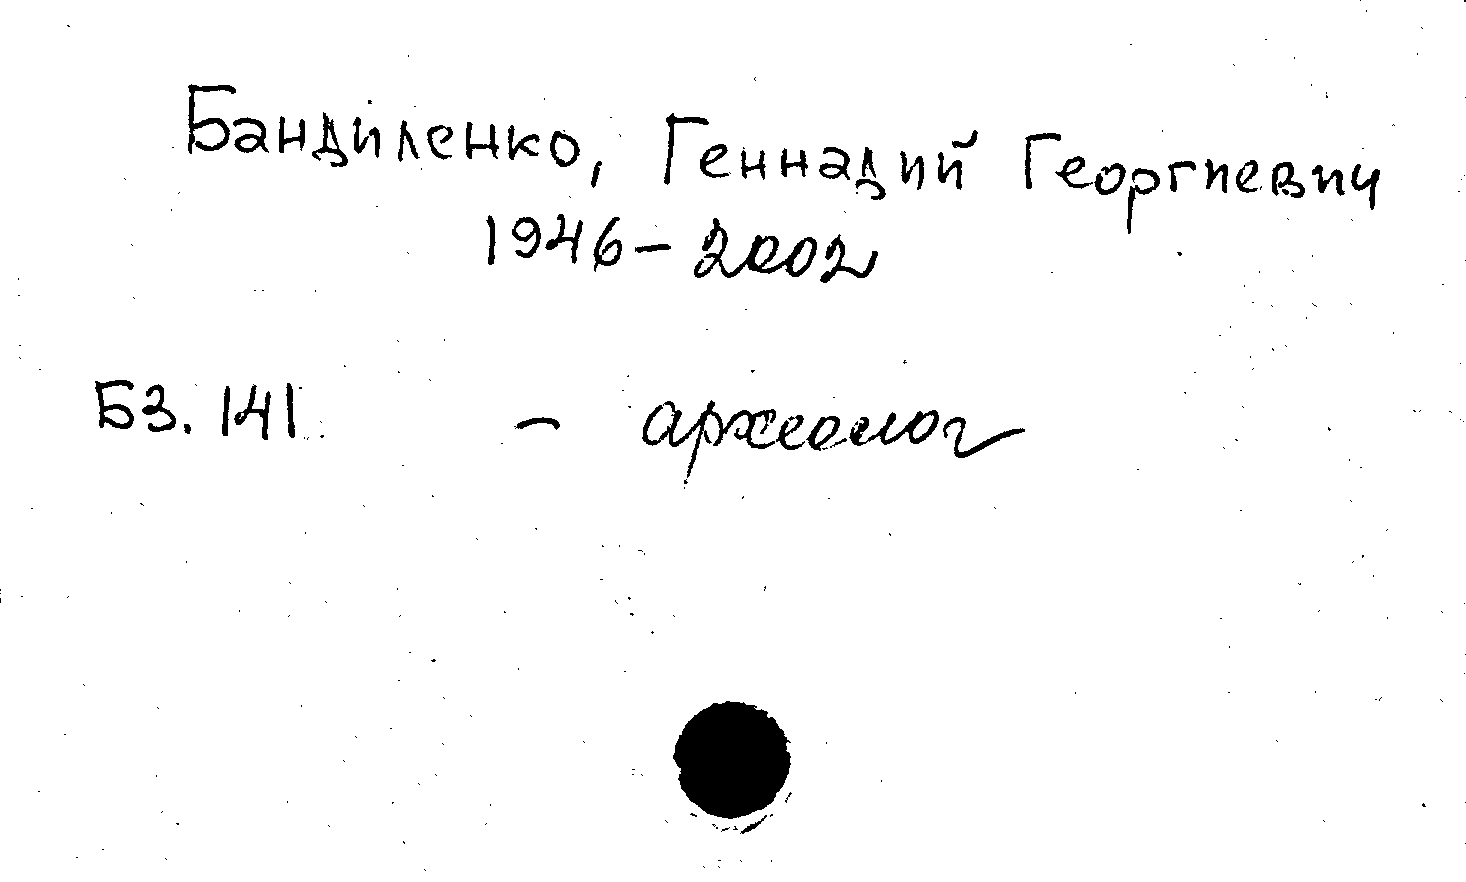 Бандиленко, Геннадий Георгиевич
1946-2002
Б3.141 - археолог